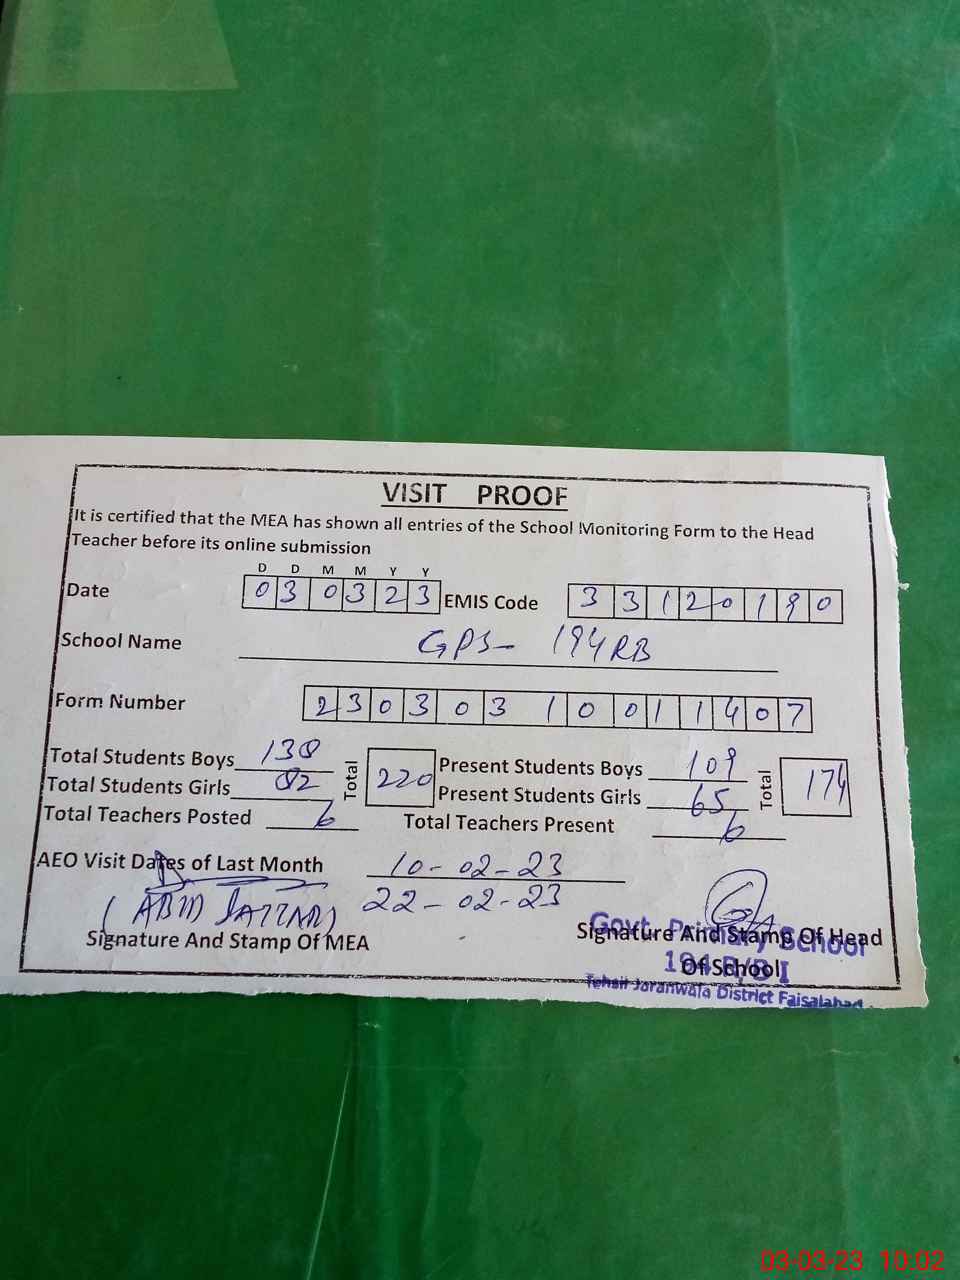 VISIT PROOF
It is certified that the MEA has shown all entries of the School Monitoring Form to the Head
Teacher before its online submission
D D M M Y Y
Date 0 3 0 3 2 3 EMIS Code 3 3 1 2 0 1 9 0
School Name GPS- 194RB
Form Number 2 3 0 3 0 3 1 0 0 1 1 4 0 7
Total Students Boys 138 Total 220 Present Students Boys 109 Total 174
Total Students Girls 82 Present Students Girls 65
Total Teachers Posted 6 Total Teachers Present 6
AEO Visit Dates of Last Month 10-02-23
22-02-23
(ABID
Signature And Stamp Of MEA
Signature And Stamp Of Head
Of School
Govt. Primary School
194 R/B I
Tehsil Jaranwala District Faisalabad
03-03-23 10:02